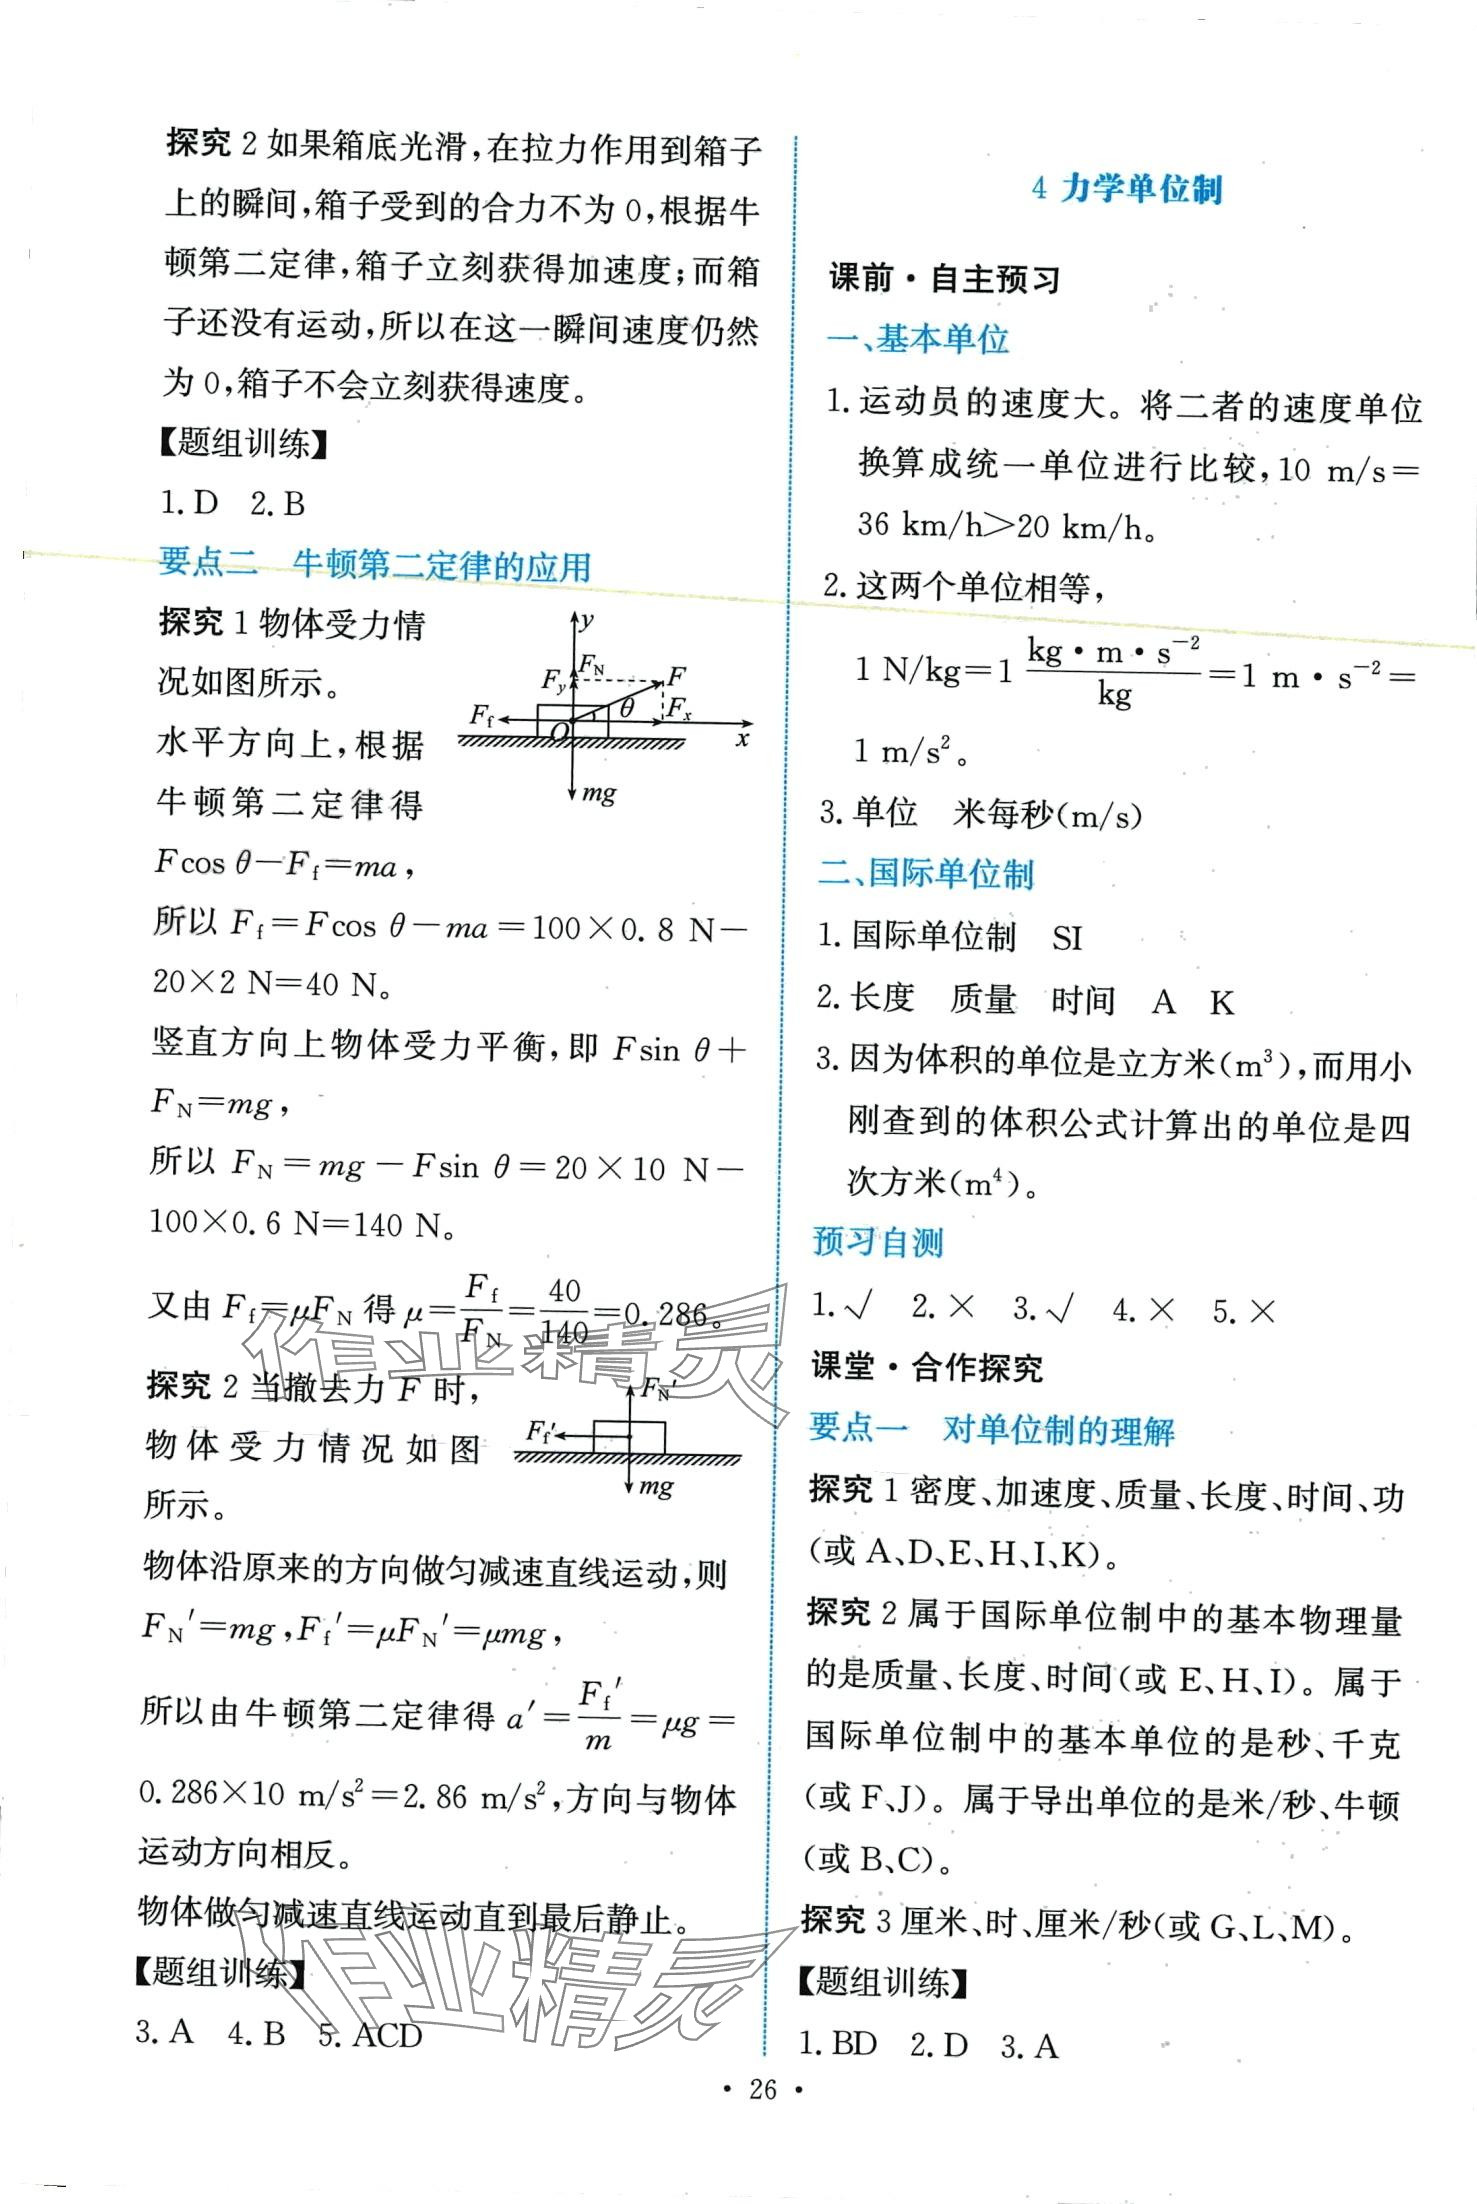 探究 2 如果箱底光滑,在拉力作用到箱子
上的瞬间,箱子受到的合力不为 0,根据牛
顿第二定律,箱子立刻获得加速度;而箱
子还没有运动,所以在这一瞬间速度仍然
为 0,箱子不会立刻获得速度。
【题组训练】
1. D 2. B
要点二 牛顿第二定律的应用
探究 1 物体受力情
况如图所示。
水平方向上,根据
牛顿第二定律得
y
F_N
F_y
F
F_f
O
θ
F_x
x
mg
Fcos θ－F_f＝ma,
所以 F_f＝Fcos θ－ma＝100×0. 8 N－
20×2 N＝40 N。
竖直方向上物体受力平衡,即 Fsin θ＋
F_N＝mg,
所以 F_N＝mg－Fsin θ＝20×10 N－
100×0. 6 N＝140 N。
又由 F_f＝μF_N 得 μ＝F_f/F_N＝40/140＝0. 286。
探究 2 当撤去力 F 时,
物体受力情况如图
所示。
F_N′
F_f′
mg
物体沿原来的方向做匀减速直线运动,则
F_N′＝mg,F_f′＝μF_N′＝μmg,
所以由牛顿第二定律得 a′＝F_f′/m＝μg＝
0. 286×10 m/s²＝2. 86 m/s²,方向与物体
运动方向相反。
物体做匀减速直线运动直到最后静止。
【题组训练】
3. A 4. B 5. ACD
4 力学单位制
课前·自主预习
一、基本单位
1. 运动员的速度大。将二者的速度单位
换算成统一单位进行比较,10 m/s＝
36 km/h＞20 km/h。
2. 这两个单位相等,
1 N/kg＝1 kg·m·s⁻²/kg＝1 m·s⁻²＝
1 m/s²。
3. 单位 米每秒(m/s)
二、国际单位制
1. 国际单位制 SI
2. 长度 质量 时间 A K
3. 因为体积的单位是立方米(m³),而用小
刚查到的体积公式计算出的单位是四
次方米(m⁴)。
预习自测
1. √ 2. × 3. √ 4. × 5. ×
课堂·合作探究
要点一 对单位制的理解
探究 1 密度、加速度、质量、长度、时间、功
(或 A、D、E、H、I、K)。
探究 2 属于国际单位制中的基本物理量
的是质量、长度、时间(或 E、H、I)。属于
国际单位制中的基本单位的是秒、千克
(或 F、J)。属于导出单位的是米/秒、牛顿
(或 B、C)。
探究 3 厘米、时、厘米/秒(或 G、L、M)。
【题组训练】
1. BD 2. D 3. A
· 26 ·
作业精灵
作业精灵